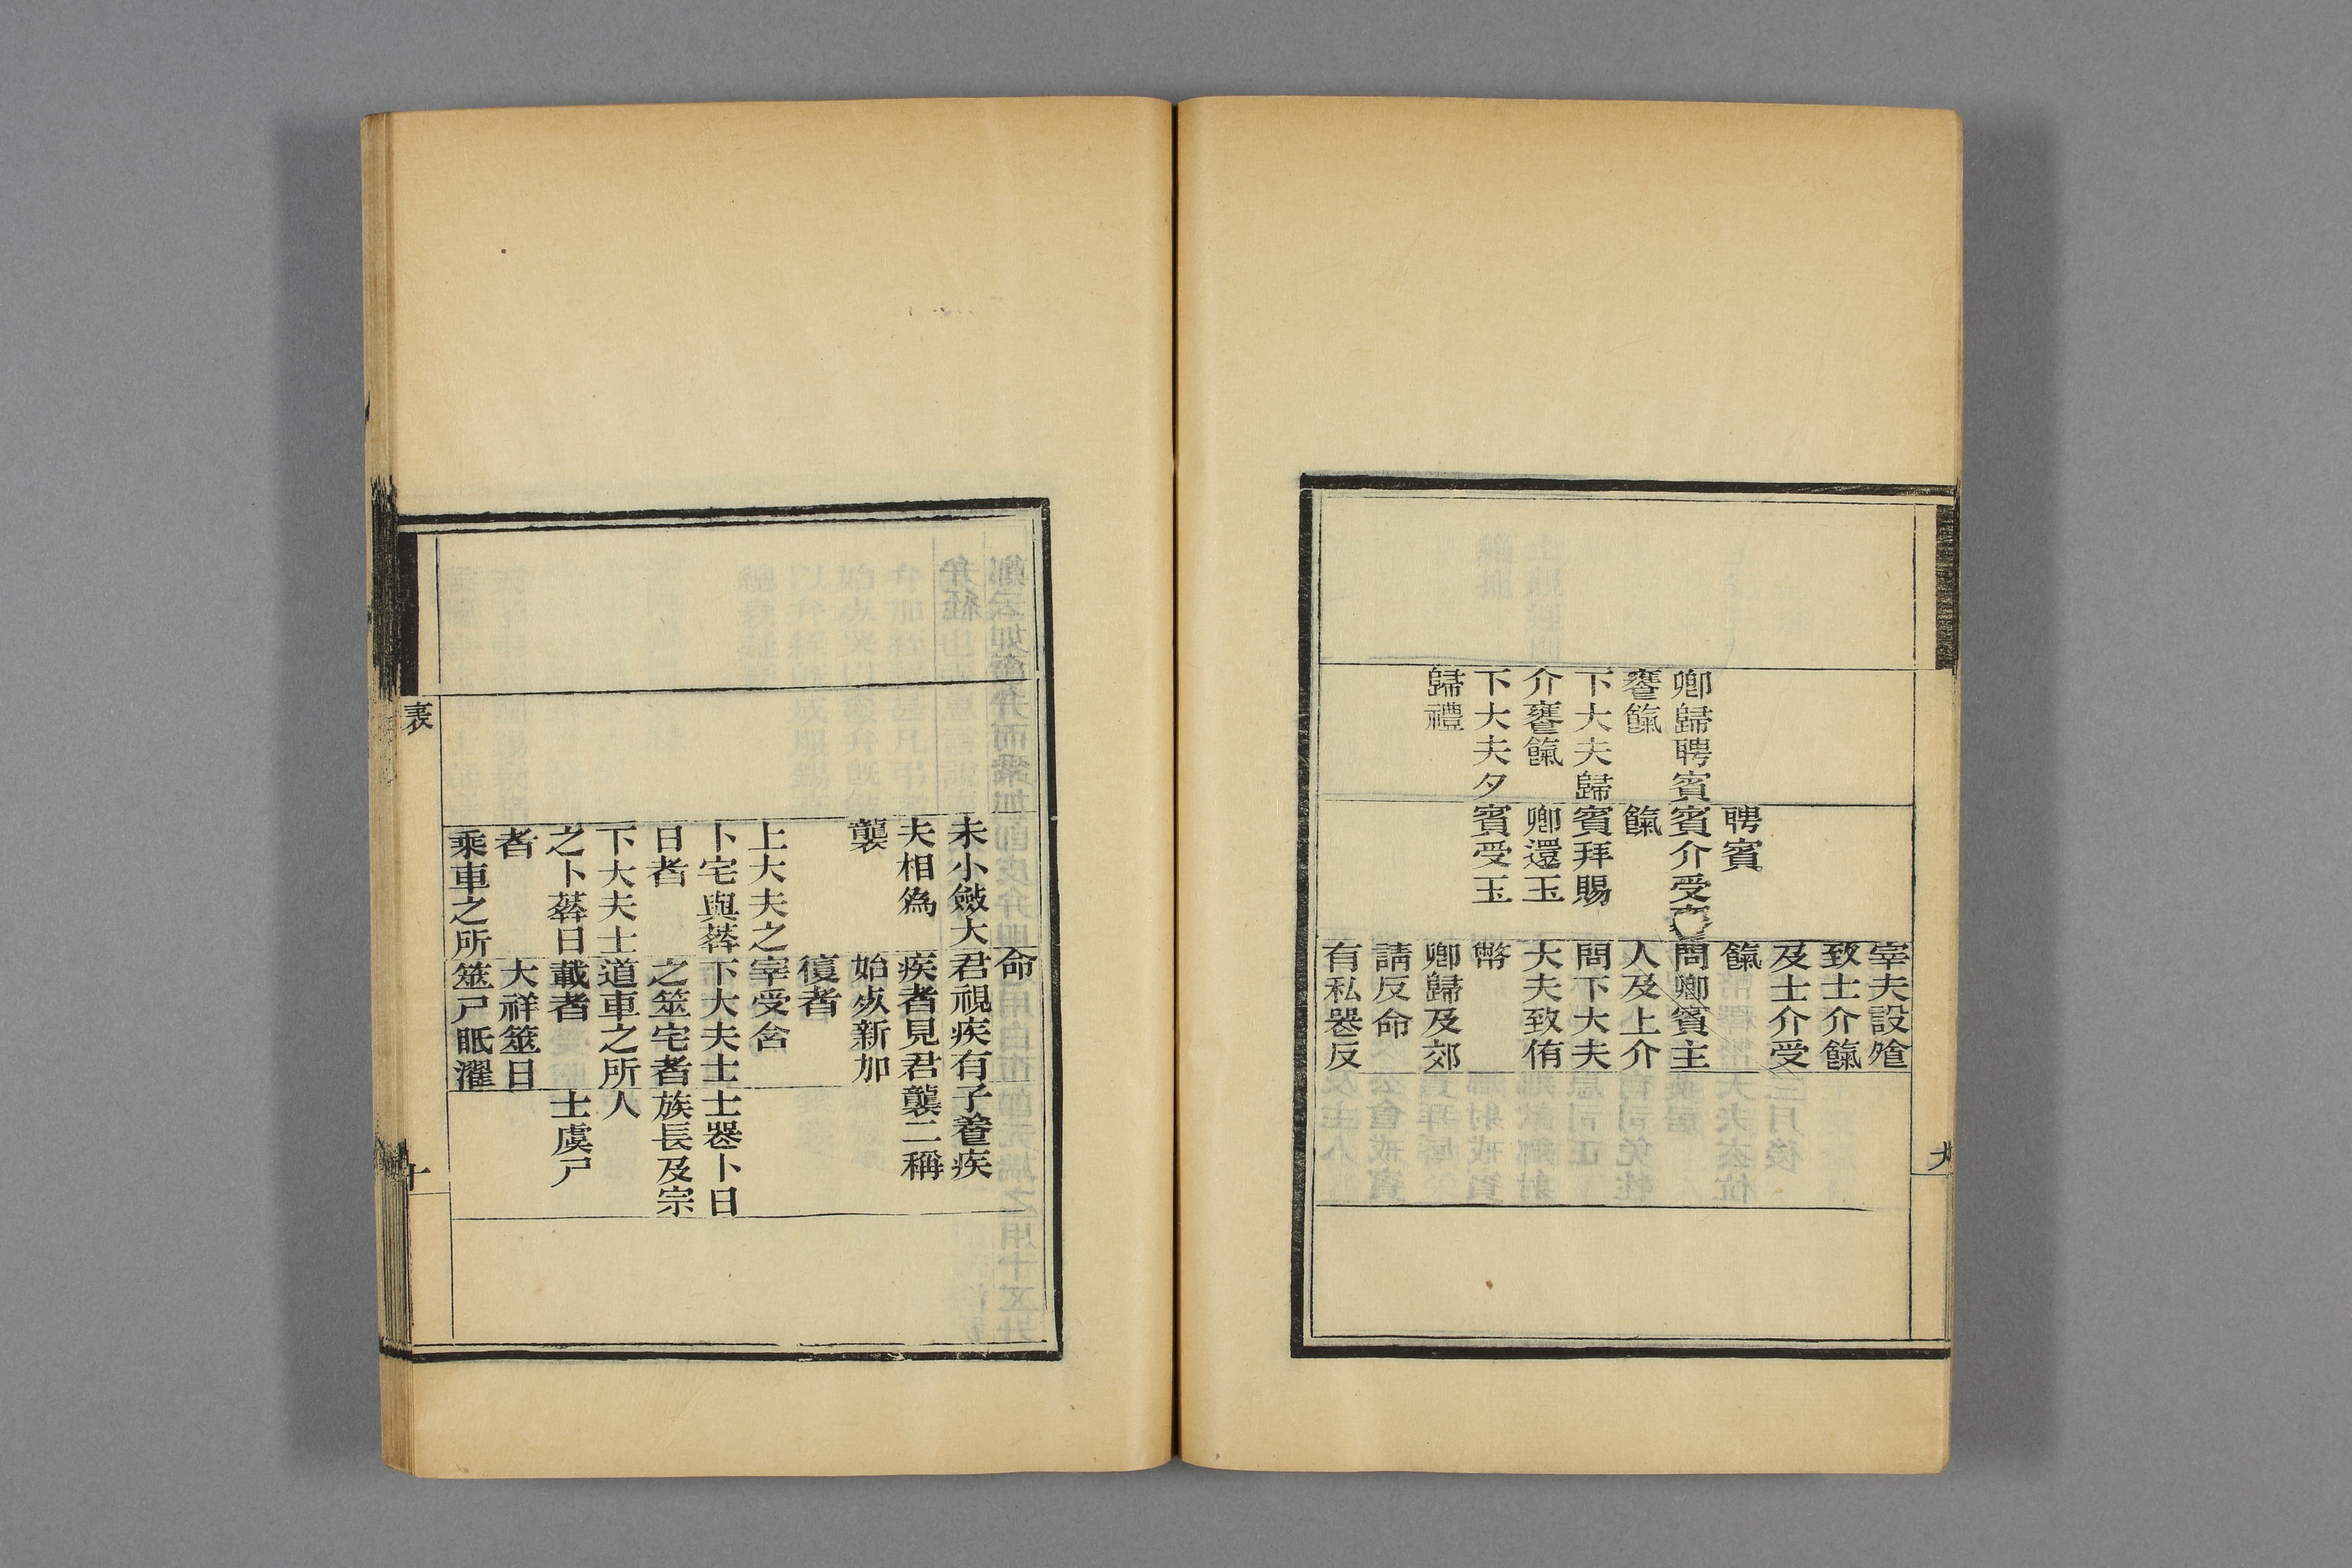 九
卿歸聘賓
饔餼
下大夫歸
介饔餼
下大夫夕
歸禮
聘賓
賓介受饔
餼
賓拜賜
卿還玉
賓受玉
宰夫設飧
致士介餼
及士介受
餼
問卿賓主
人及上介
問下大夫
大夫致侑
幣
卿歸及郊
請反命
有私喪反
未小斂大
夫相爲
襲
上大夫之
卜宅與葬
日者
下大夫士
之卜葬日
者
乘車之所
命
君視疾有
疾者見君
始死新加
復者
宰受含
下大夫士
之筮宅者
道車之所
載者
大祥筮日
筮尸眡濯
子養疾
襲二稱
士喪卜日
族長及宗
人
士虞尸
表
十